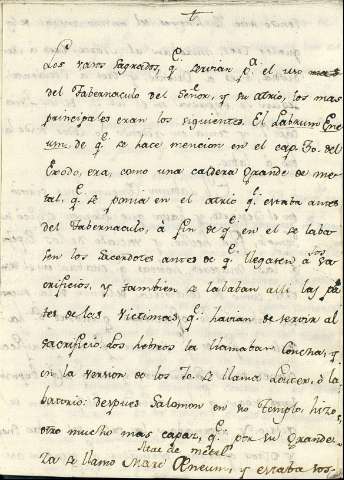 Los vasos sagrados, q.e servian p.a el uso
del Tabernaculo del Señor, y su atrio, los mas
principales eran los siguientes. El Labrum Æne-
um, de q.e se hace mencion en el cap. 30. del
Exodo, era, como una caldera grande de me-
tal, q.e se ponia en el atrio q.e estaba antes
del Tabernaculo, à fin de q.e en el se laba-
sen los sacerdotes antes de q.e llegasen à los sa-
crificios, y tambien se lababan alli las par-
tes de las victimas, q.e havian de servir al
sacrificio. Los hebreos la llamaban Concha, y
en la version de los 70. se llama Louter, ò la-
batorio: despues Salomon en su Templo, hizo
otro mucho mas capaz, q.e por su grande-
Mar de metal
za se llamo Mare Æneum, y estaba sos-